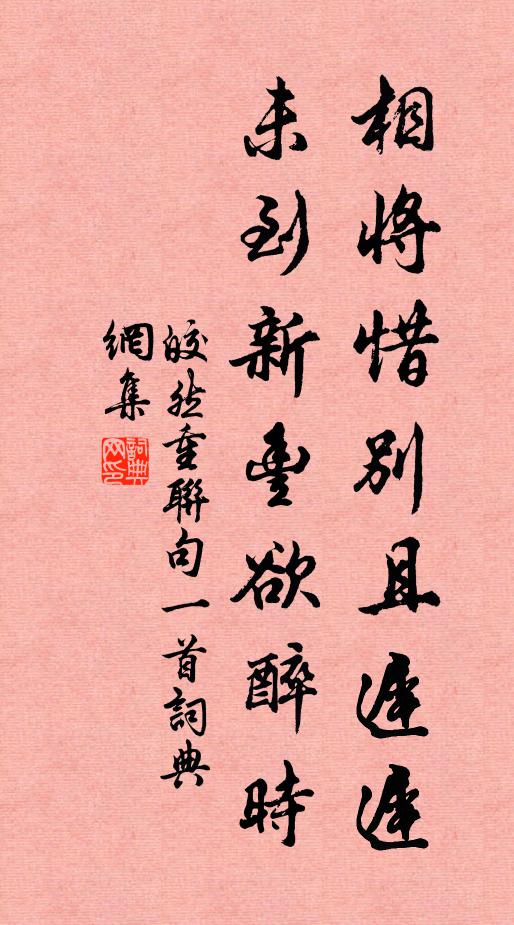 相將惜別且遲遲
未到新豐欲醉時
皎然重聯句一首詞典
網集
詞典
网印